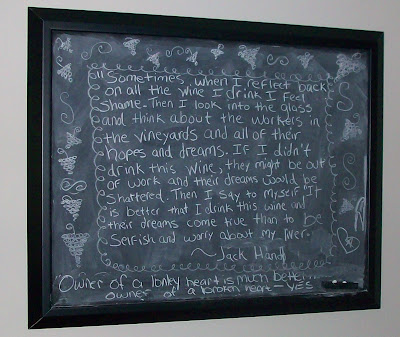 "Sometimes when I reflect back
on all the wine I drink I feel
shame. Then I look into the glass
and think about the workers in
the vineyards and all of their
hopes and dreams. If I didn't
drink this wine, they might be out
of work and their dreams would be
shattered. Then I say to myself, It
is better that I drink this wine and
their dreams come true than to be
selfish and worry about my liver.
~Jack Handy
"Owner of a lonely heart is much better...
owner of a broken heart - YES